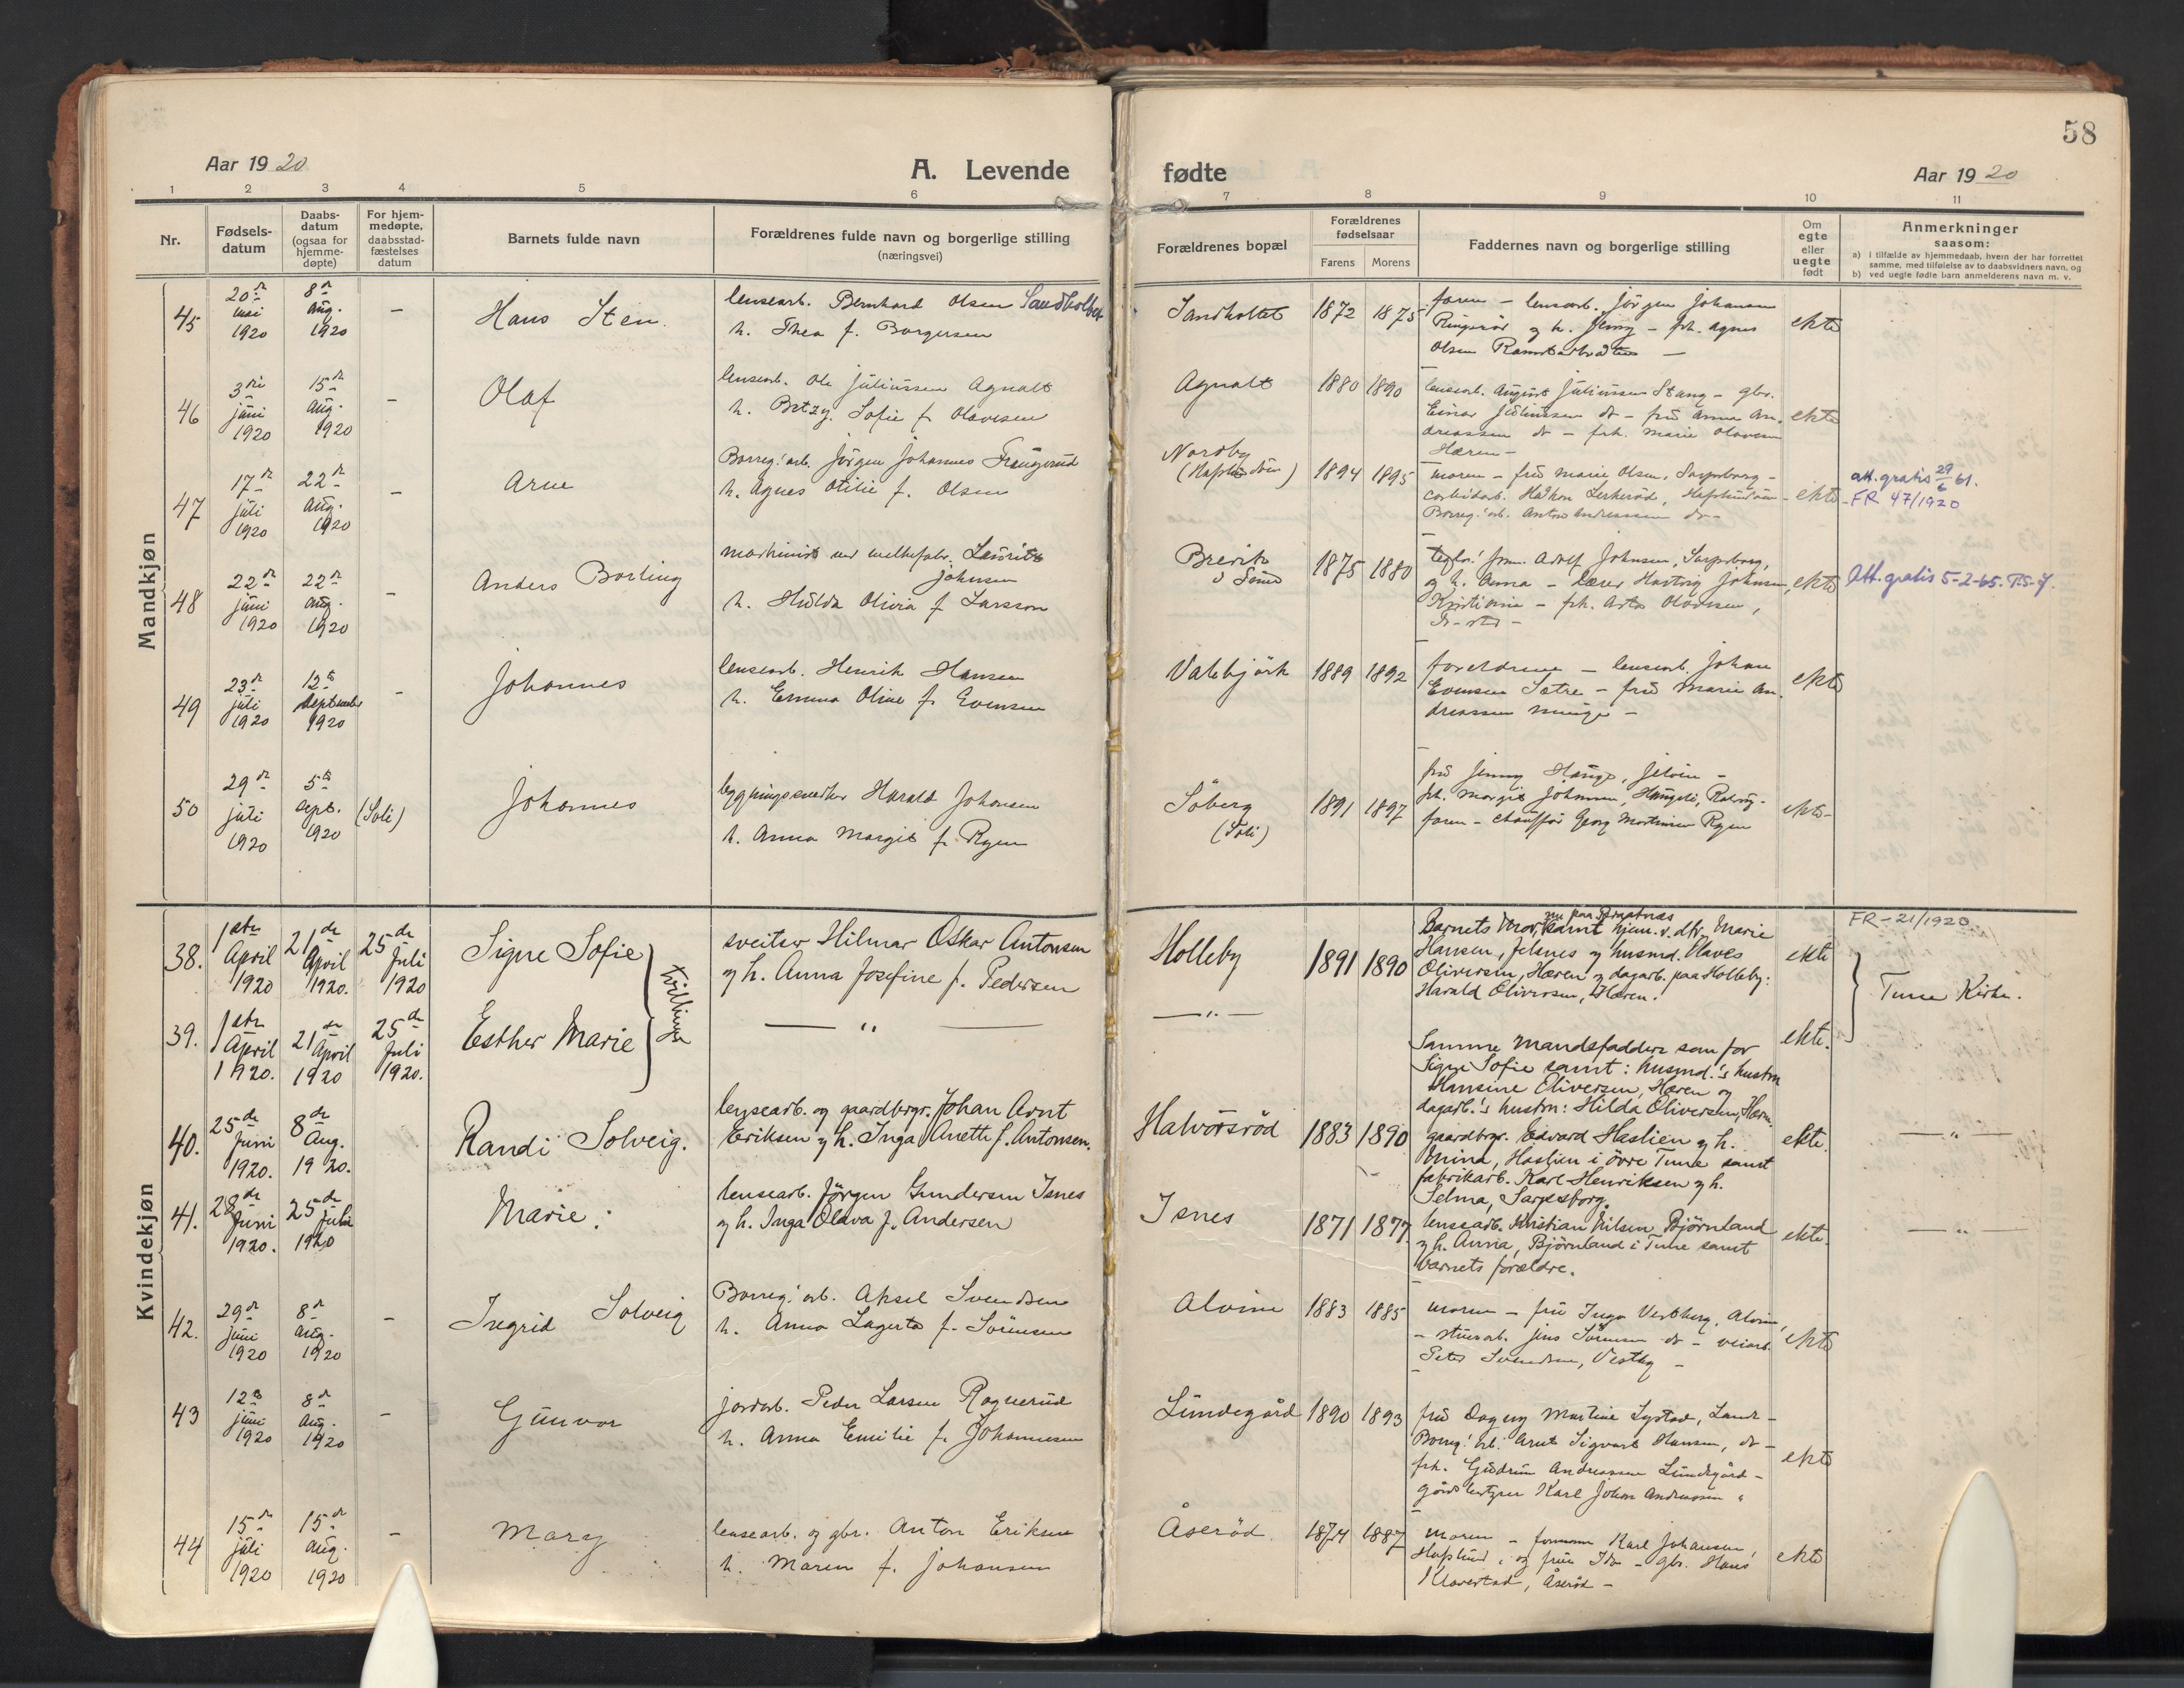 58
Aar 1920
A. Levende fødte
Aar 1920
1 2 3 4 5 6 7 8 9 10 11
Nr.
Fødsels-
datum
Daabs-
datum
(ogsaa for
hjemme-
døpte)
For hjem-
medøpte,
daabsstad-
fæstelses
datum
Barnets fulde navn
Forældrenes fulde navn og borgerlige stilling
(næringsvei)
Forældrenes bopæl
Forældrenes
fødselsaar
Farens Morens
Faddernes navn og borgerlige stilling
Om
egte
eller
uegte
født
Anmerkninger
saasom:
a) i tilfælde av hjemmedaab, hvem der har forrettet
samme, med tilføielse av to daabsvidners navn, og
b) ved uegte fødte barn anmelderens navn m. v.
Mandkjøn
45
20de
mai
1920
8de
aug.
1920
–
Hans Sten.
lensearb. Bernhard Olsen Sandholtet
h. Thea f. Borgersen
Sandholtet
1872 1875
faren – lensearb. Jörgen Johansen
og h. Jenny – frk. Agnes
Olsen
ekte
46
3die
juni
1920
15de
aug.
1920
–
Olaf
lensearb. Ole Juliussen Agnalt
h. Betzy Sofie f. Olavesen
Agnalt
1880 1890
lensearb. August Juliussen Stang – gbr.
Einar Juliussen do – fru Anna An-
dreassen do – frk. Marie Olavesen
Hæren –
ekte
47
17de
juli
1920
22de
aug.
1920
–
Arne
Borreg. arb. Jörgen Johannes
h. Agnes Otilie f. Olsen
Nordby
(Hafslundsöen)
1894 1895
moren – fru Marie Olsen, Sarpsborg –
carbidarb. Håkon Lerkeröd, Hafslundsöen –
Borreg. arb. Anton Andreassen do –
ekte
att. gratis 29/6 61.
FR 47/1920
48
22de
juni
1920
22de
aug.
1920
–
Anders Borling
maskinist ved melkefabr. Lauritz
Johnsen
h. Hulda Olivia f. Larsson
Brevik
1875 1880
form. Adolf Johnsen, Sarpsborg,
og h. Anna – Lærer Hartvig Johnsen,
Kristiania – frk. Asta Olavesen,
ekte
Att. gratis 5-2-65.
49
23de
juli
1920
12te
september
1920
–
Johannes
lensearb. Henrik Hansen
h. Emma Oline f. Evensen
Valebjörk
1889 1892
foreldrene – lensearb. Johan
Evensen Sætre – fru Marie An-
dreassen Minge –
ekte
50
29de
juli
1920
5te
sept.
1920
(Soli)
Johannes
bygningssnedker Harald Johansen
h. Anna Margit f. Ryen
Söberg
(Soli)
1891 1897
fru Jenny Hauge, Jelöen –
frk. Margit Johansen, Haugsli, Rakvåg –
faren – chauffør Georg Mortinsen Ryen
ekte –
Kvindekjøn
38.
1ste
April
1920
21de
April
1920.
25de
Juli
1920
Signe Sofie
tvillinger
sveitser Hilmar Oskar Antonsen
og h. Anna Josefine f. Pedersen
Holleby
1891 1890
Barnets mor, samt hjem. v. dtr. Marie
Hansen, Jelsnes og husmd. Olaves
Oliversen, Hæren og dagarb. paa Holleby:
Harald Oliversen, Hæren.
ekte
FR – 21/1920.
Tune Kirke.
39.
1ste
April
1920.
21de
April
1920
25de
Juli
1920.
Esther Marie
— „ —
— „ —
Samme mandsfaddere som for
Signe Sofie samt: husmd.'s hustru
Hansine Oliversen, Hæren og
dagarb.'s hustru: Hilda Oliversen, Hæren.
ekte.
40.
25de
Juni
1920.
8de
Aug.
1920.
Randi Solveig.
lensearb. og gaardbrgr. Johan Arnt
Eriksen og h. Inga Anette f. Antonsen.
Halvörsröd
1883 1890
gaardbrgr. Edvard Haslien og h.
Mina, Haslien i övre Tune samt
fabrikarb. Karl Henriksen og h.
Selma, Sarpsborg.
ekte.
— „ —
41.
28de
Juni
1920.
25de
Juli
1920
Marie.
lensearb. Jörgen Gundersen Isnes
og h. Inga Olava f. Andersen
Isnes
1871 1877.
lensearb. Kristian Nilsen Björnland
og h. Anna, Björnland i Tune samt
barnets forældre.
ekte.
— „ —
42.
29de
juni
1920
8de
aug.
1920
–
Ingrid Solveig
Borreg. arb. Aksel Svendsen
h. Anna Lagerta f. Sörensen
Alvim
1883 1885
moren – fru Inga Vestberg, Alvim,
– stuerarb. Jens Sörensen do – veiarb.
Peter Svendsen, Vestby –
ekte
43
12te
juni
1920
8de
aug.
1920
–
Gunvor
jordarb. Peder Larsen Rognerud
h. Anna Emilie f. Johannesen
Lundegård
1890 1893
fru Dagny Martine Lystad, Lande –
Borreg. arb. Arnt Sigvart Hansen, do –
frk. Gudrun Andreassen Lundegård –
gårdbestyrer Karl Johan Andreassen „
ekte
44
15de
juli
1920
15de
aug.
1920
–
Mary
lensearb. og gbr. Anton Eriksen
h. Maren f. Johansen
Åseröd
1874 1887
moren – formann Karl Johansen,
Hafslund, og frue Ida – gbr. Hans
Ullavestad, Åseröd –
ekte